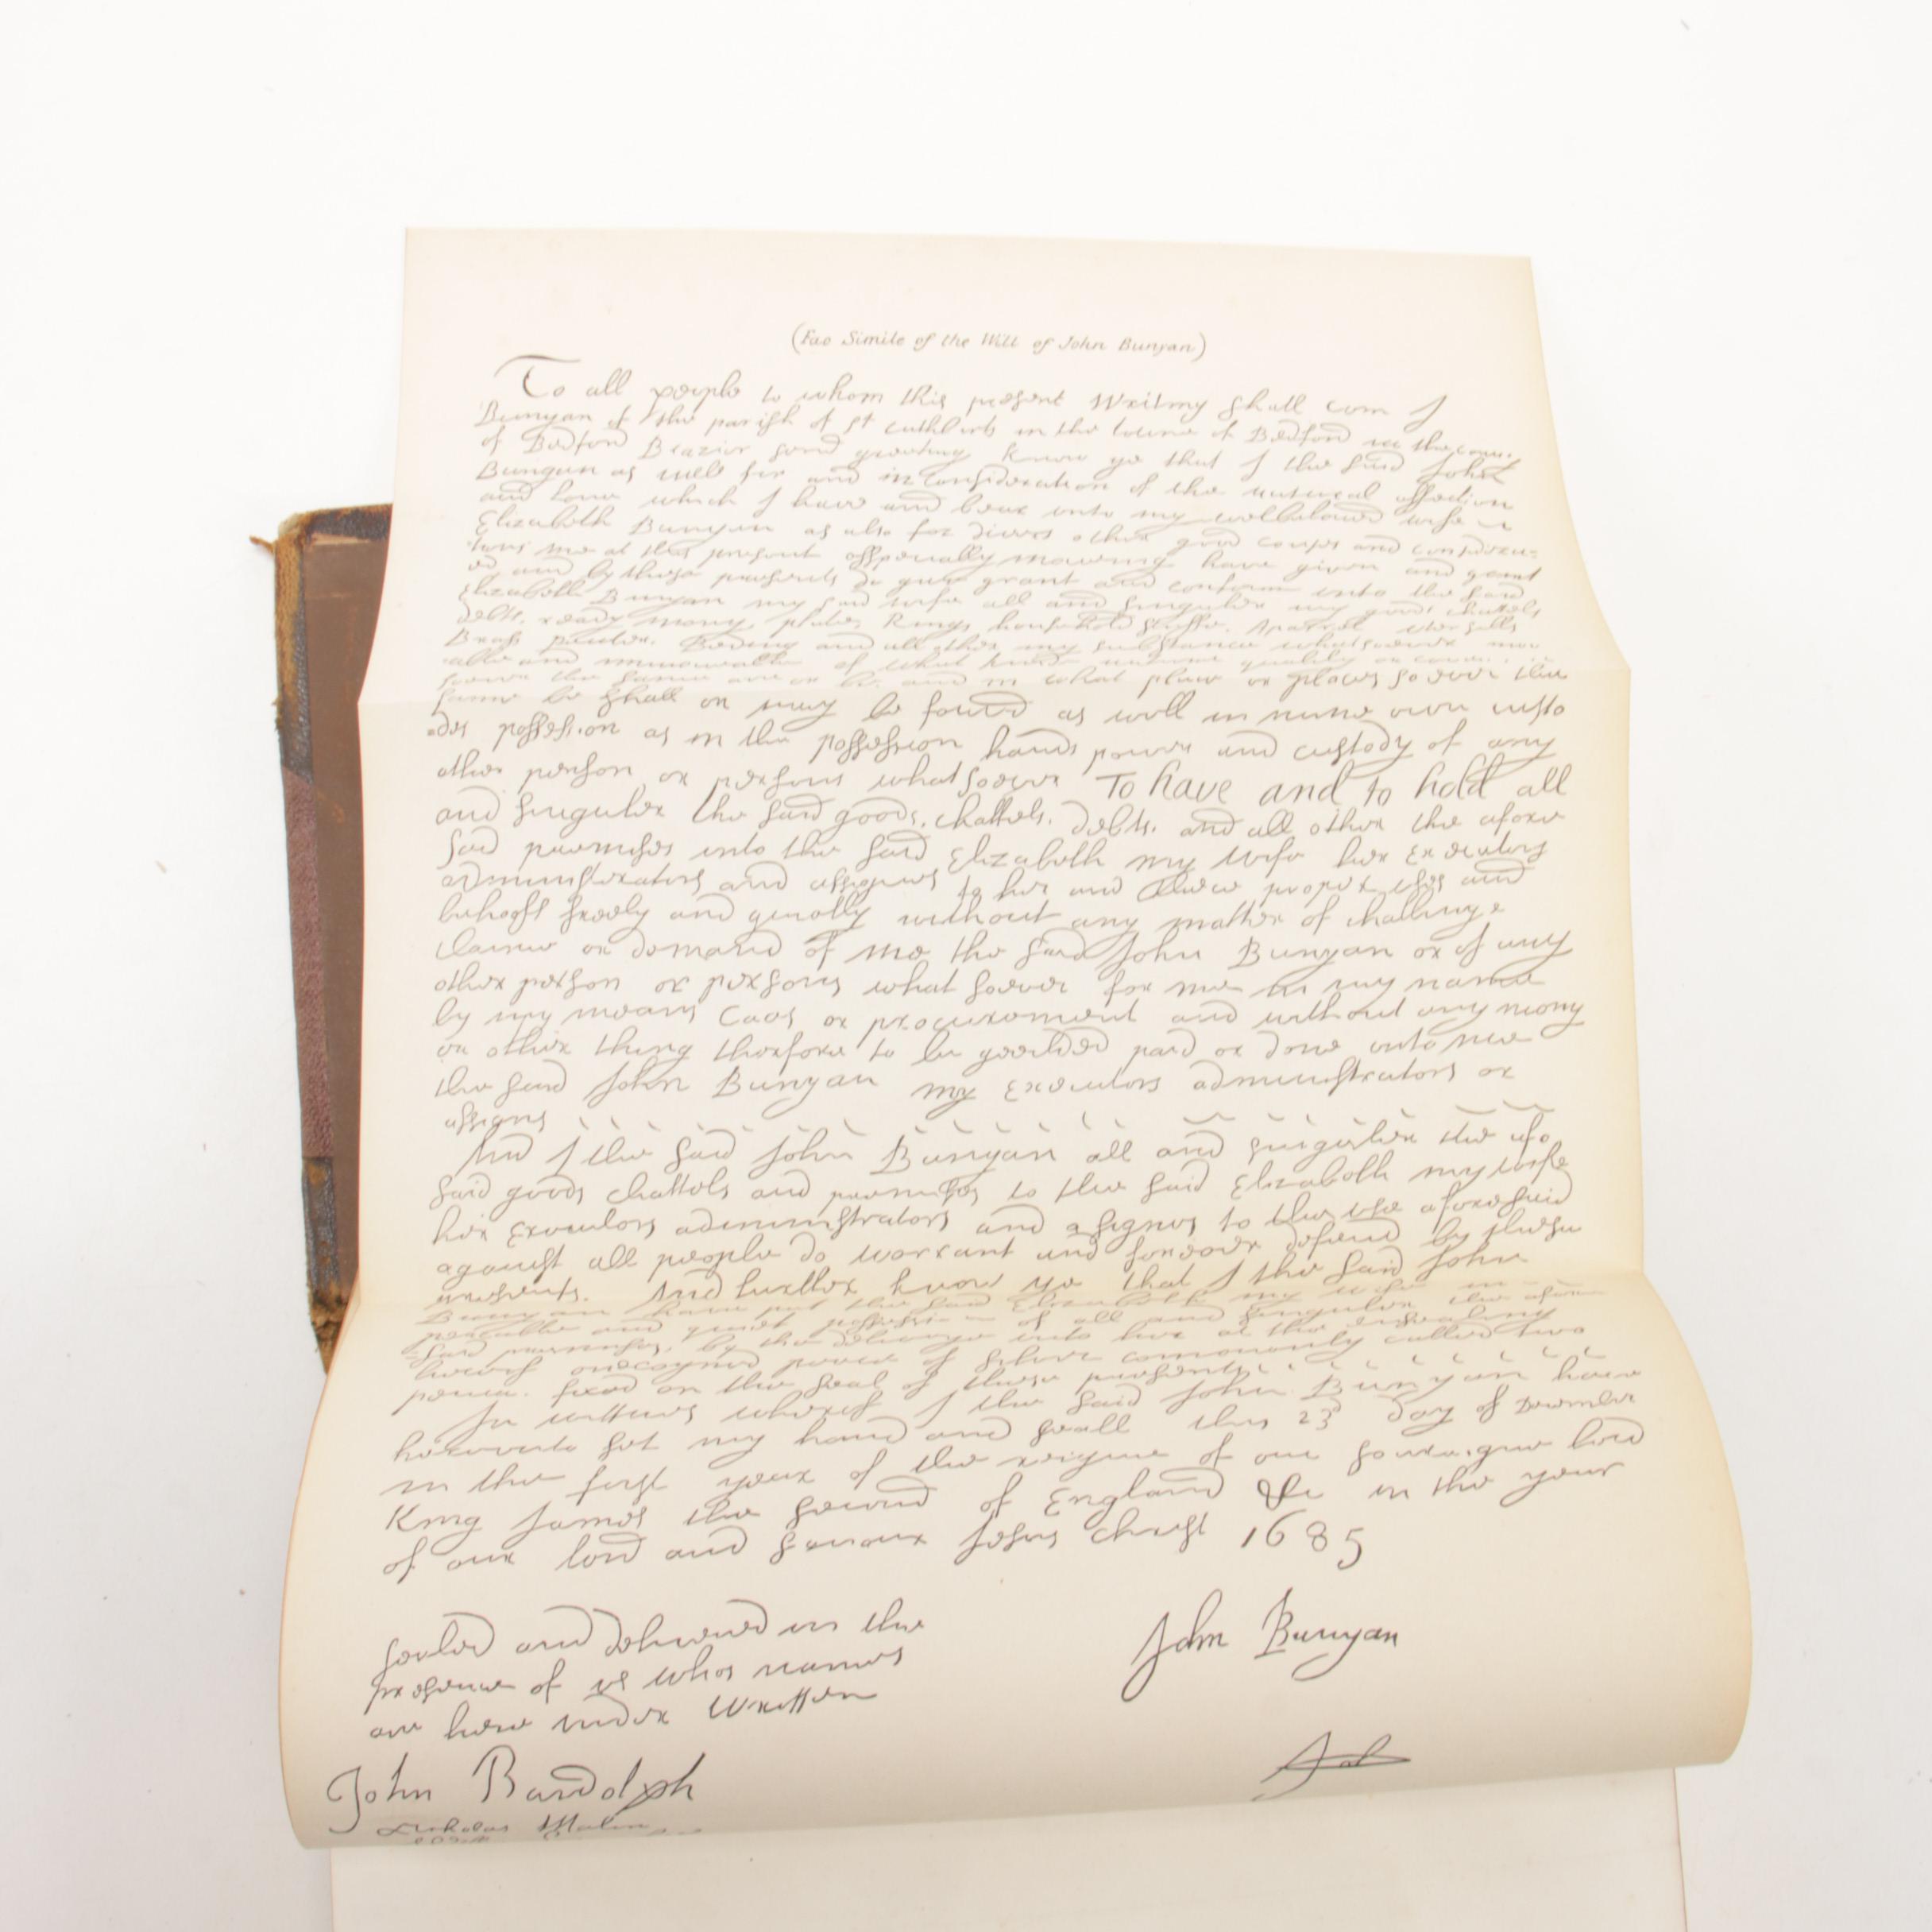 (Fac Simile of the Will of John Bunyan)
To all people to whom this present Writing shall com I
Bunyan of the parish of st cuthberts in the towne of Bedford in the coun
of Bedford Brazier send greeting Know ye that I the said John
Bunyan as well for and in Consideration of the natural affection
and Loue which I haue and bear vnto my welbeloued wife
Elizabeth Bunyan as also for diuers other good causes and considera-
tions me at this present esspecially moueing haue giuen and grant
ed and by these presents do giue grant and conferm vnto the said
Elizabeth Bunyan my said wife all and singuler my goods chattels
debts, ready mony, plate, Rings, household stuffe, Aparrel vtensills
Brass pewter. Beding and all other my substance whatsoeuer mou
able and immoueable of what kinde nature quality or
soeuer the same are or be and in what place or places soeuer the
same be shall or may be found as well in mine own custo
-des possession as in the possession hands power and custody of any
other person or persons whatsoeuer To have and to hold all
and singuler the said goods. chattels. debts. and all other the afore
said premises vnto the said Elizabeth my wife her Executors
administrators and assignes to her and theire proper vses and
behooff freely and quietly without any matter of challinge
claime or demand of me the said John Bunyan or of any
other person or persons what soeuer for me in my name
by my means Caos or procurement and without any mony
or other thing therefore to be yeelded paid or done vnto me
the said John Bunyan my Executors administrators or
assigns
And I the said John Bunyan all and singuler the afo
said goods chattels and premises to the said Elizabeth my wife
her Executors administrators and asignes to the vse aforesaid
against all people do warrant and foreuer defend by these
presents. And further know ye that I the said John
Bunyan haue put the said Elizabeth my wife in
peacable and quiet possession of all and singuler the afore
-said premises, by the deliuerye vnto her at the ensealing
hereof one coyned peece of siluer commonly called two
pence. fixed on the seal of these presents
In wittnes whereof I the said John Bunyan haue
hereunto set my hand and seall this 23 day of December
in the first year of the reigne of our souraigne lord
King James the second of England &c in the year
of our lord and sauiour Jesus Christ 1685
sealed and deliuered in the
presence of vs whos names
are here vnder Written
John Bunyan
John Bardolph
Nicholas Malin